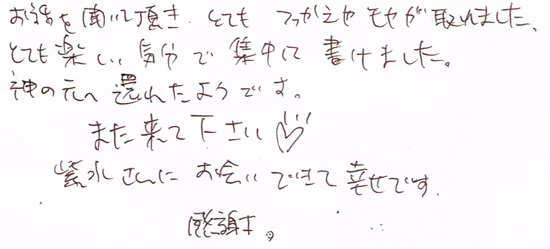 お話を聞いて頂き、とても つっかえや モヤが取れました、
とても楽しい気分で集中して書けました。
神の元へ還れたようです。
また来て下さい♡
紫水さんにお会いできて幸せです.
感謝。